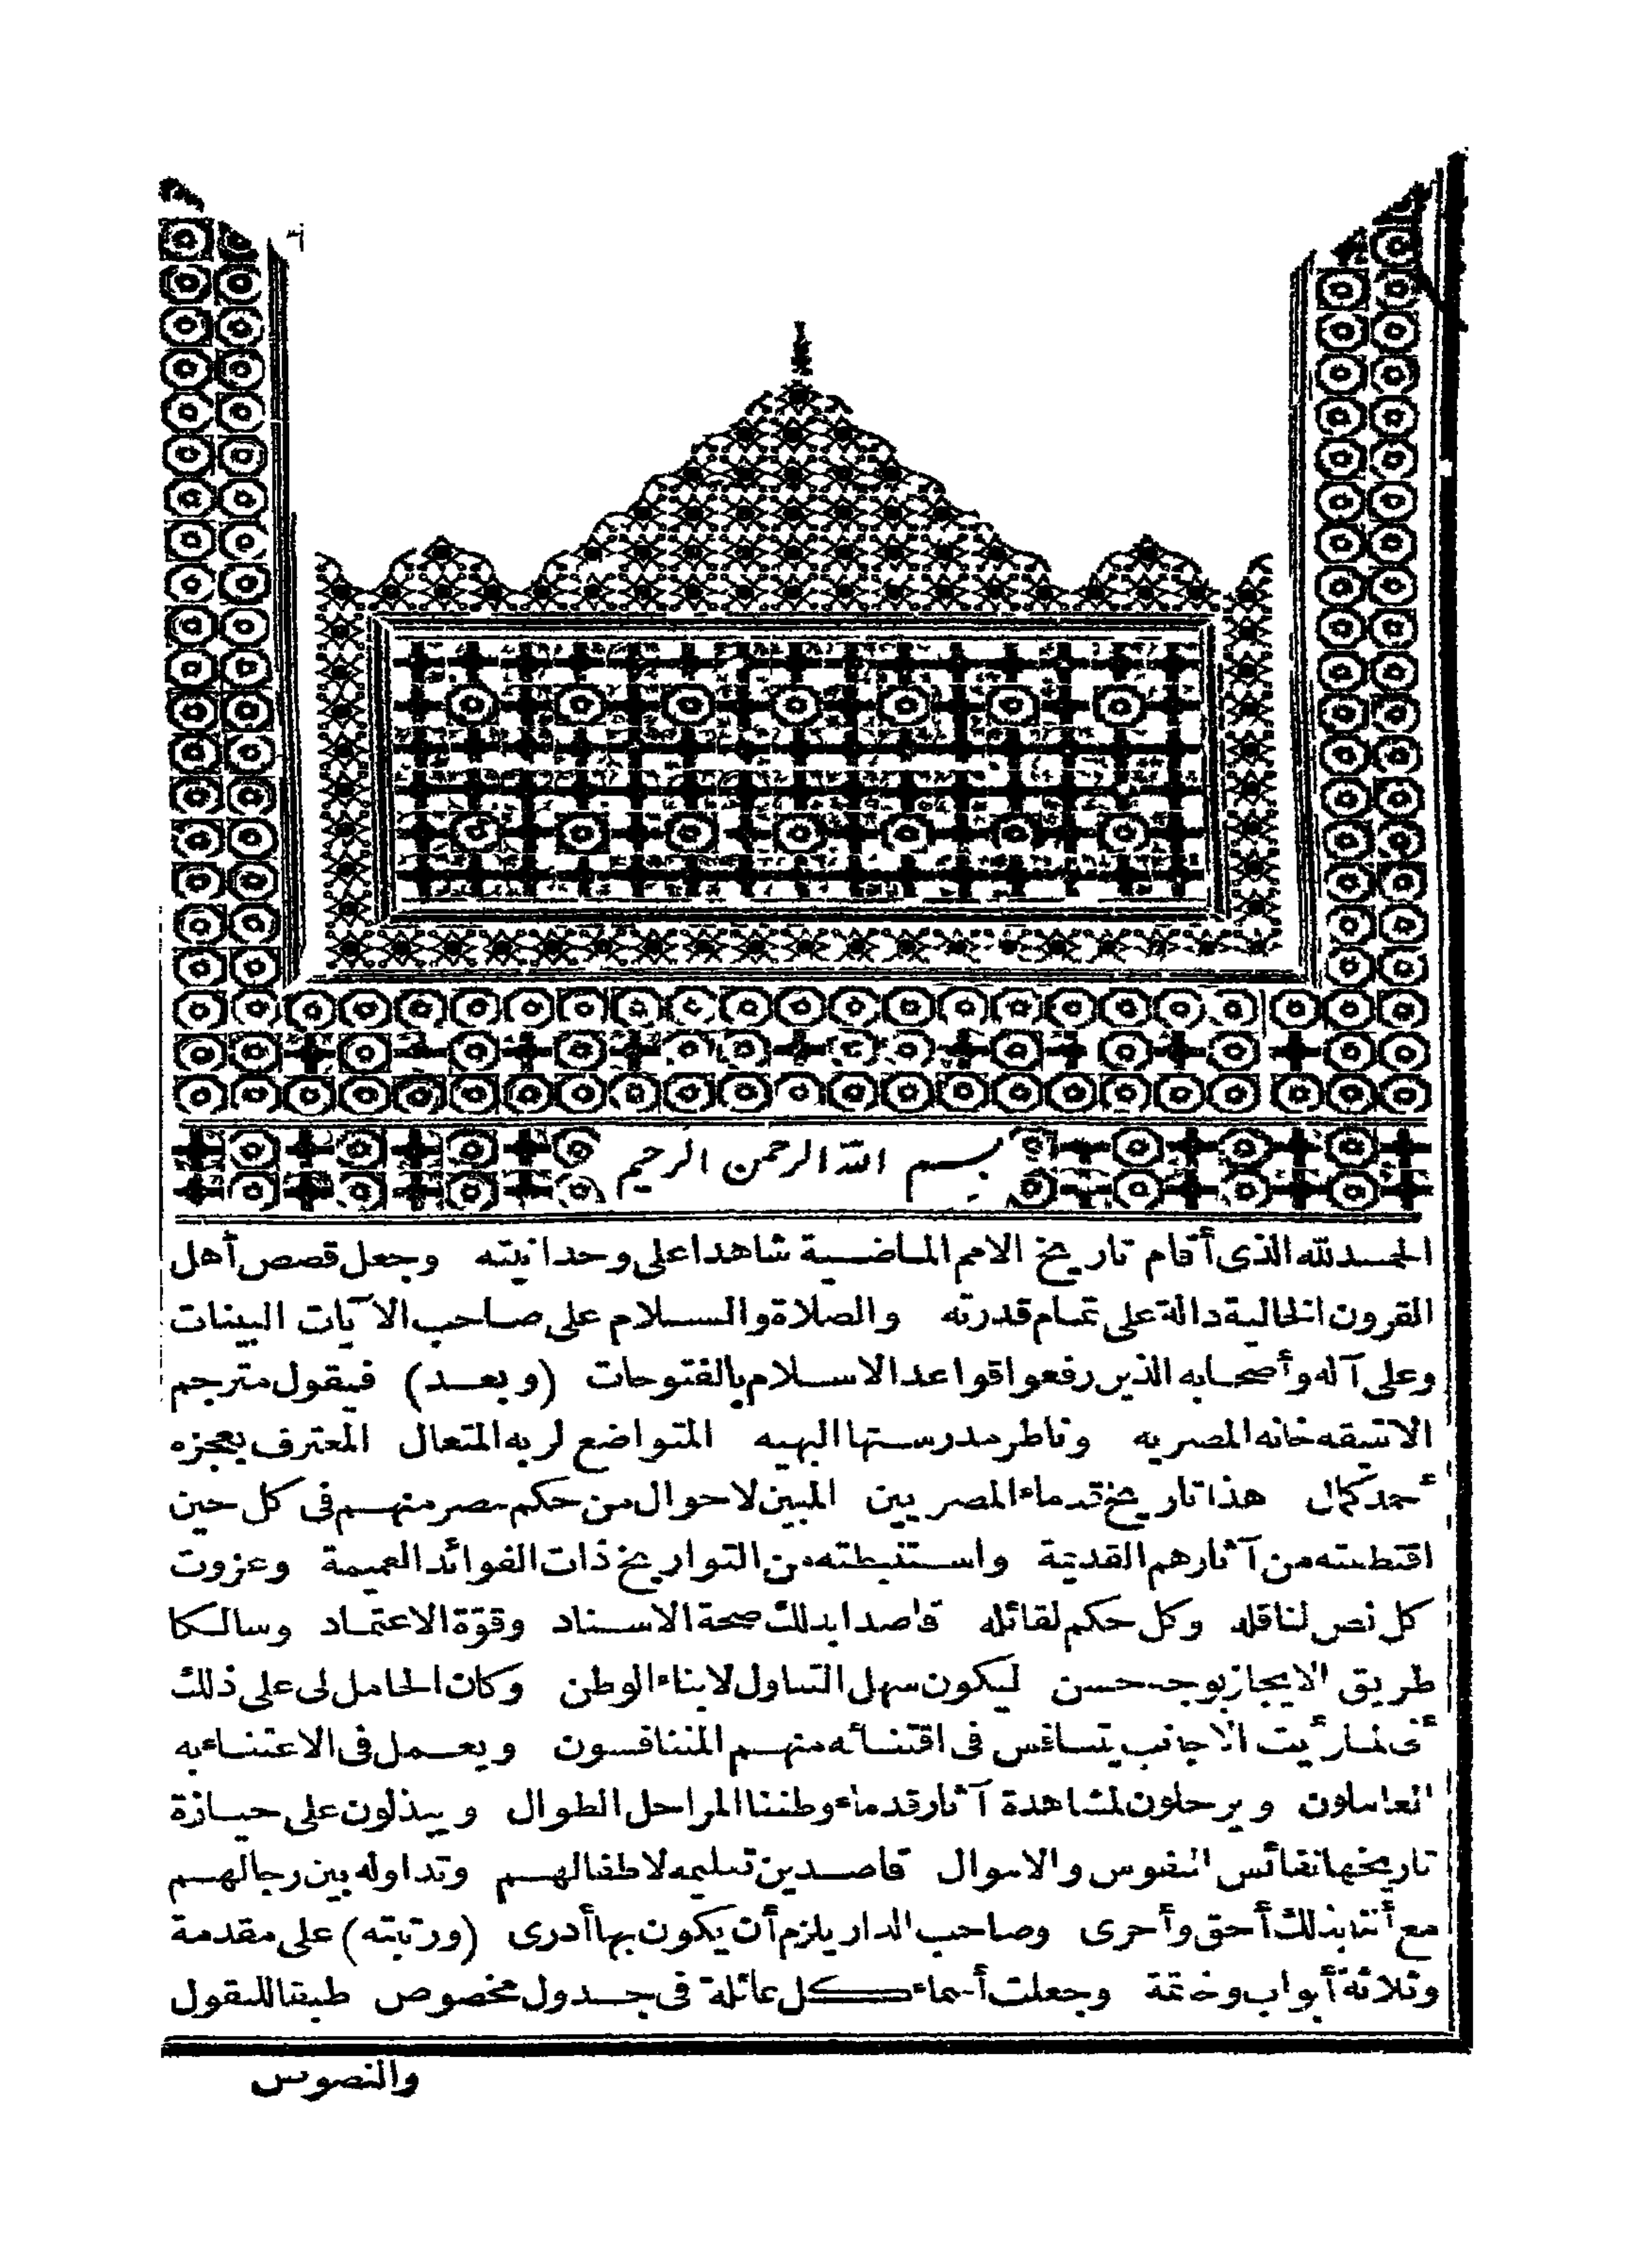 بسم الله الرحمن الرحيم
الحمد لله الذى أقام تاريخ الامم الماضية شاهدا على وحدانيته وجعل قصص أهل
القرون الخالية دالة على تمام قدرته والصلاة والسلام على صاحب الآيات البينات
وعلى آله وأصحابه الذين رفعوا قواعد الاسلام بالفتوحات (وبعد) فيقول مترجم
الانتيقه خانه المصريه وناظر مدرستها البهيه المتواضع لربه المتعال المعترف بعجزه
أحمد كمال هذا تاريخ قدماء المصريين المبين لاحوال من حكم مصر منهم فى كل حين
اقتطفته من آثارهم القديمة واستنبطته من التواريخ ذات الفوائد العميمة وعزوت
كل نص لناقله وكل حكم لقائله قاصدا بذلك صحة الاسناد وقوّة الاعتماد وسالكا
طريق الايجاز بوجه حسن ليكون سهل التناول لابناء الوطن وكان الحامل لى على ذلك
أنى لما رأيت الاجانب يتنافس فى اقتنائه منهم المتنافسون ويعمل فى الاعتناء به
العاملون ويرحلون لمشاهدة آثار قدماء وطننا المراحل الطوال ويبذلون على حيازة
تاريخها نفائس النفوس والاموال قاصدين تعليمه لاطفالهم وتداوله بين رجالهم
مع أننا بذلك أحق وأحرى وصاحب الدار يلزم أن يكون بها أدرى (ورتبته) على مقدمة
وثلاثة أبواب وخاتمة وجعلت أسماء كل عائلة فى جدول مخصوص طبقا للنقول
والنصوص